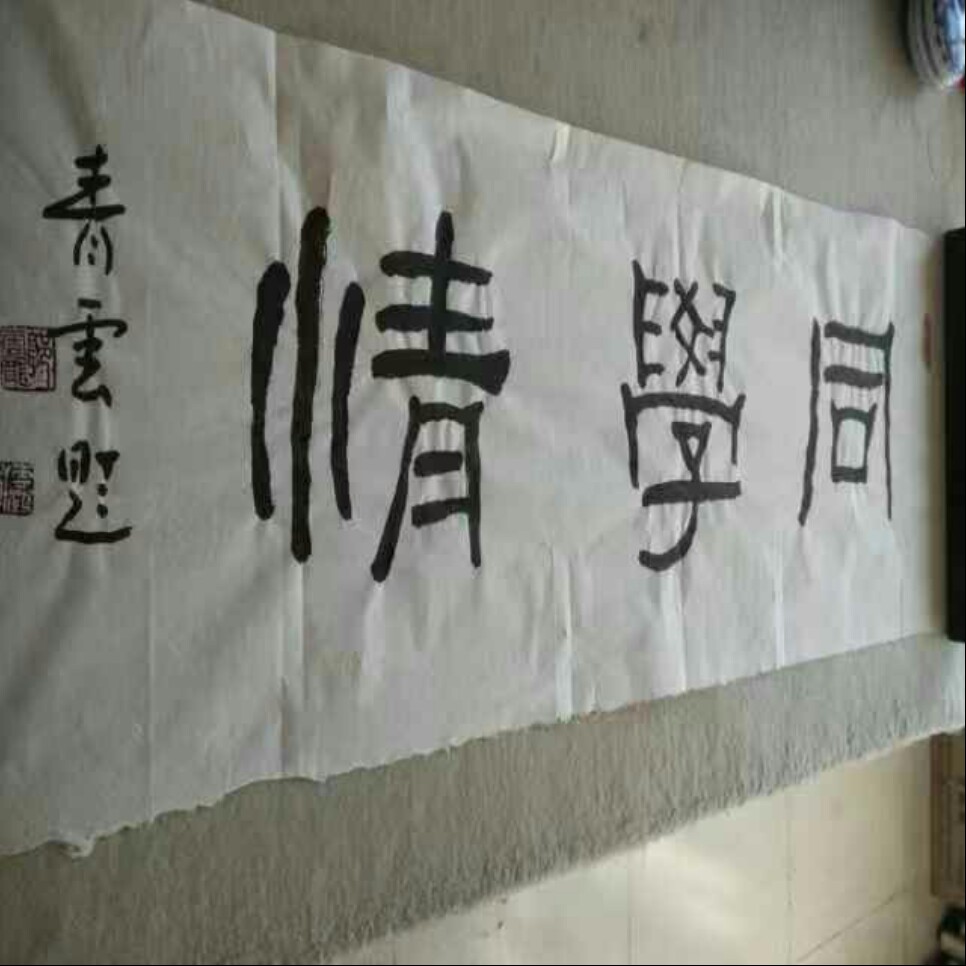 同學情
青雲题